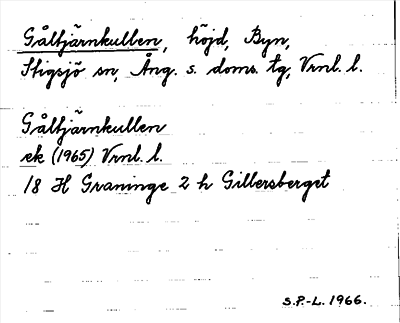 Gåltjärnkullen, höjd, Byn,
Stigsjö sn, Ång. s. doms. tg, Vrnl. l.
Gåltjärnkullen
ek (1965) Vrnl. l.
18 H Graninge 2 h Gillersberget
S.P.-L. 1966.